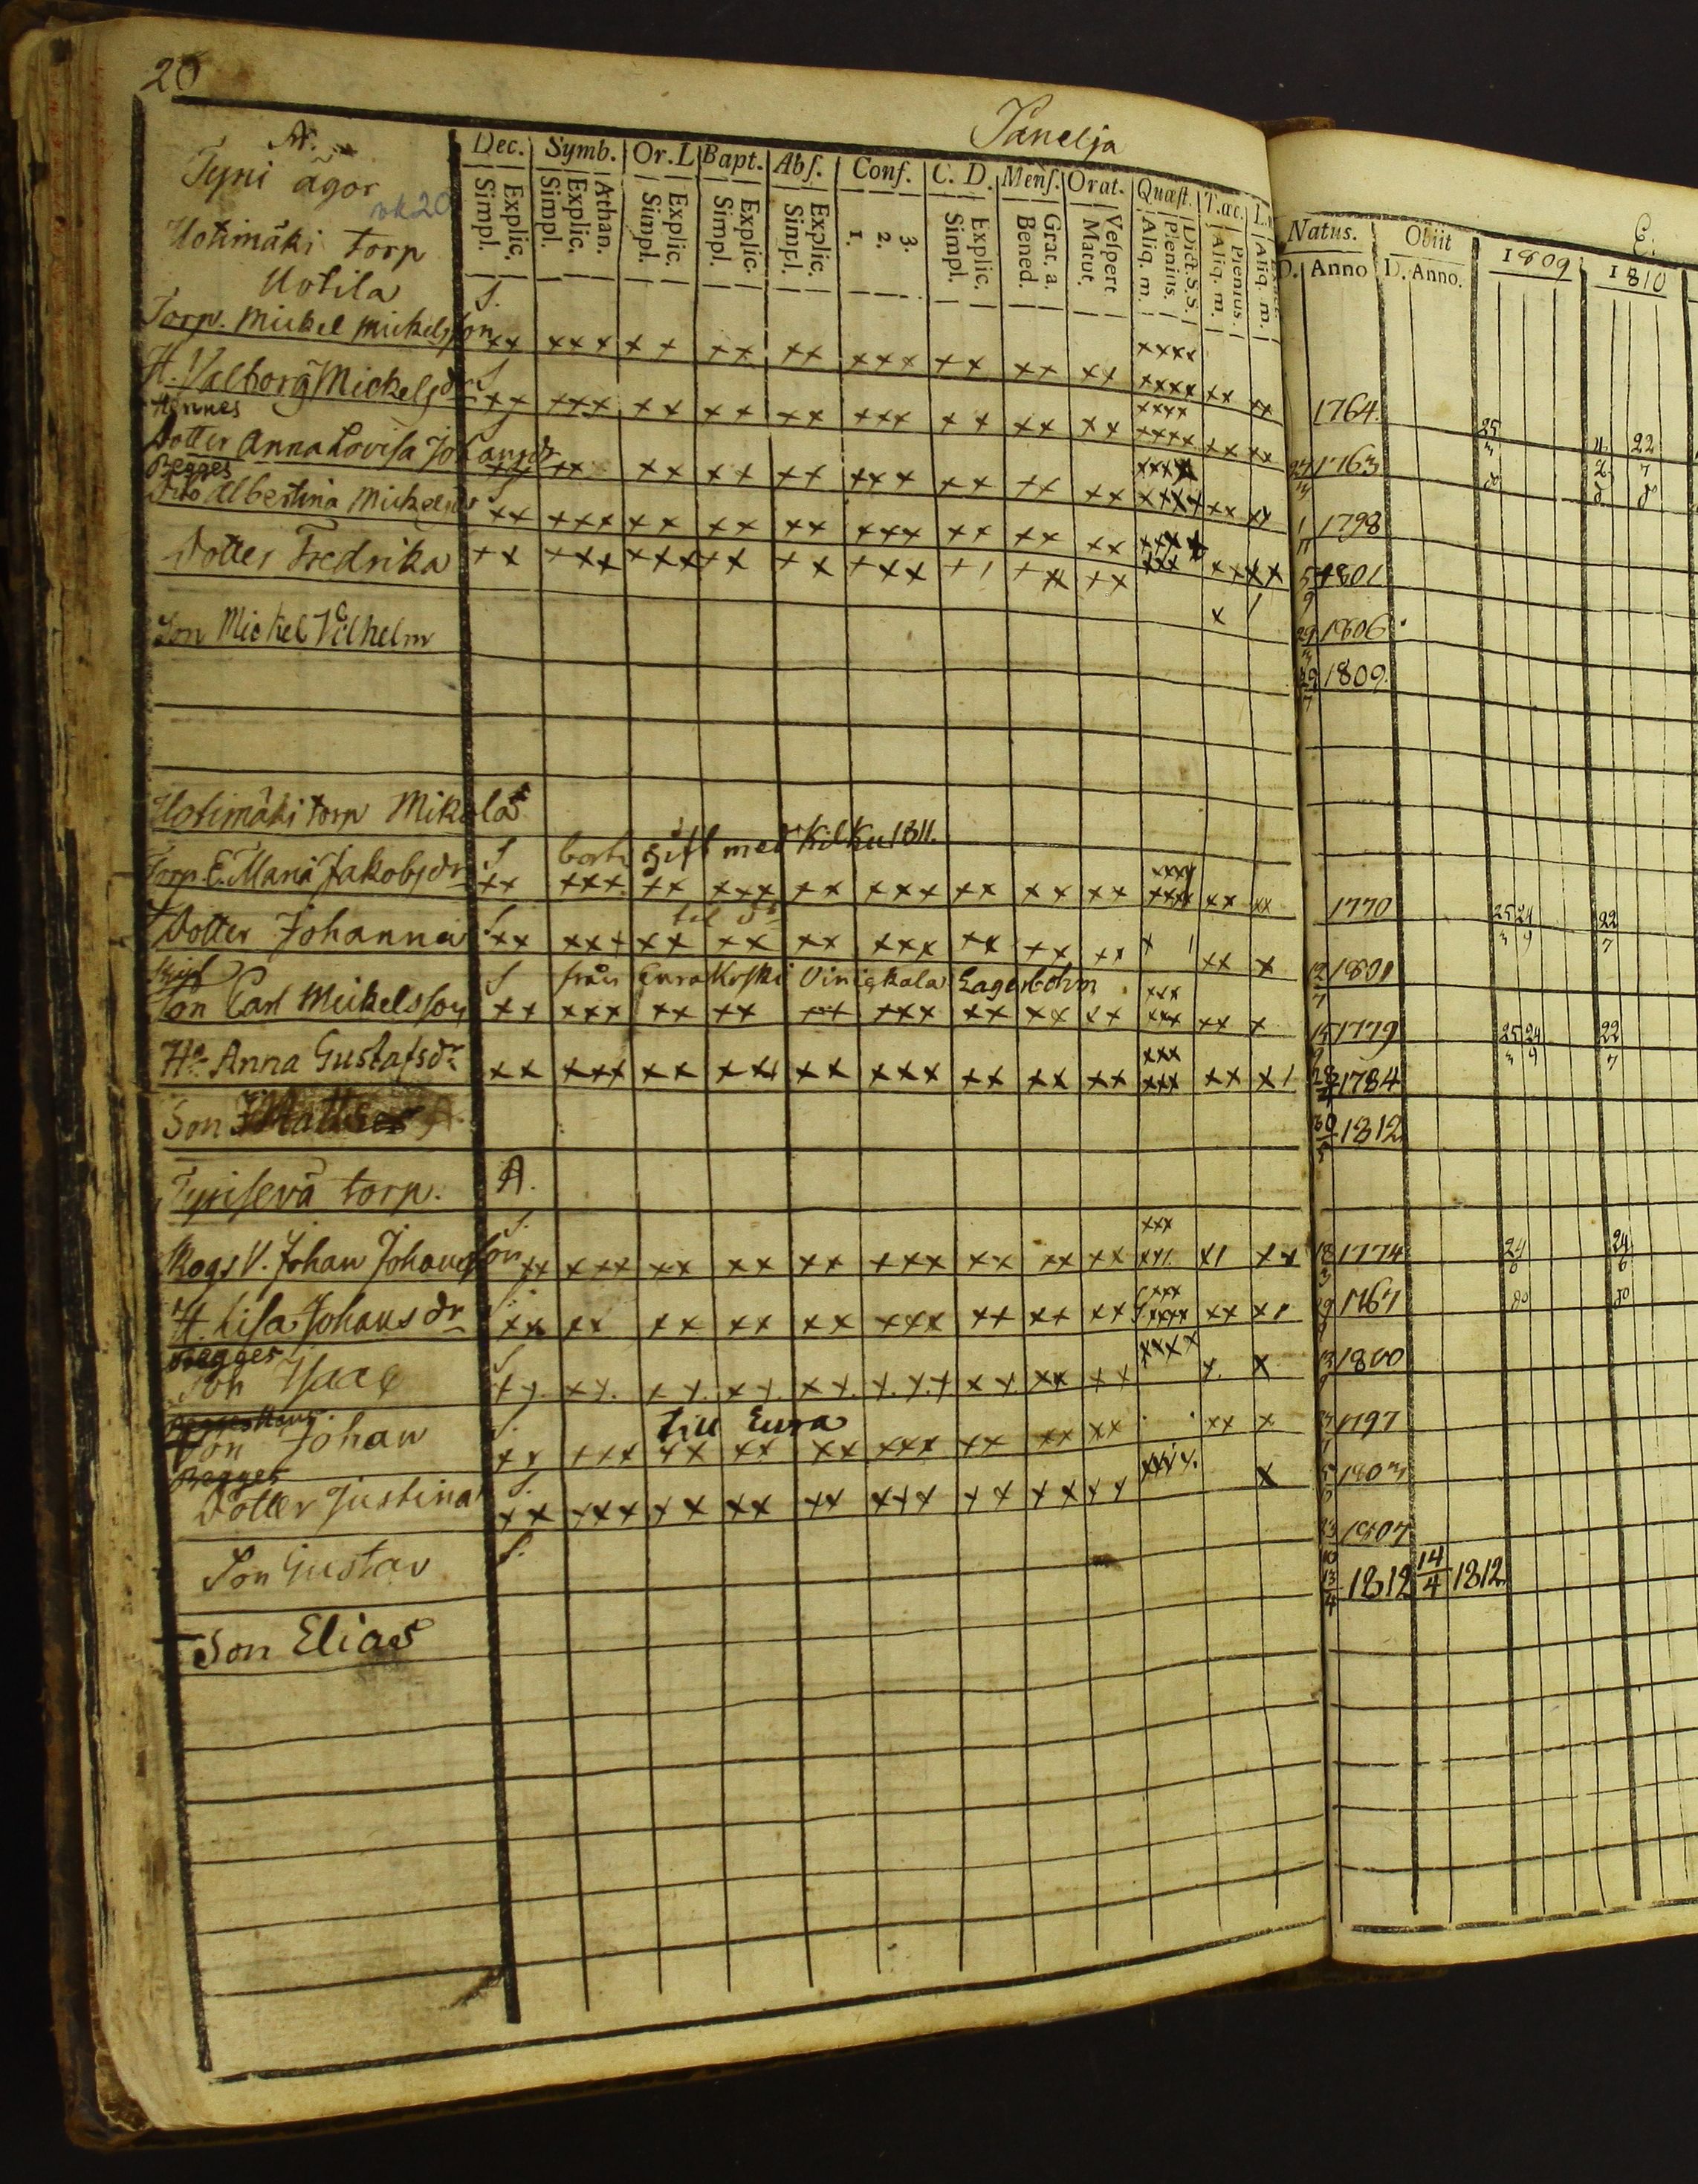 20
Panelja
N:
Tyni ägor
vk20
Uotimäki torp
Uotila
Dec. Symb. Or. L Bapt. Abs. Conf. C. D. Mens. Orat. Quæst. T.œc.
Simpl. Explic. Simpl. Explic. Athan. Simpl. Explic. Simpl. Explic. Simpl. Explic. 1. 2. 3. Simpl. Explic. Bened. Grat. a. Matut. Vespert. Aliq. m. Plenius. Dict.S.S. Aliq. m. Plenius. Aliq. m.
Natus. Obiit 1809 1810
D. Anno D. Anno.
Torp. Mickel Mickelsson S. xx xxx xx xx xx xxx xx xx xx xxxx xx xx 1764.
H. Valborg Mickelsdr S xx xxx xx xx xx xxx xx xx xx xxxx xx xx 1763
Hennes
Dotter Anna Lovisa Johansdr xx xx xx xx xx xxx xx xx xx xxxx xx xx 1 11 1798
Begges
Dito Albertina Mickelsdr S xx xxx xx xx xx xxx xx xx xx xxxx xx xx 5 9 1801
Dotter Fredrika xx xxx xxx xx xx xxx x1 xx xx xxx x 1 1806
Son Mickel Vilhelm 29 7 1809.
Uotimäki torp Mikola
S bort gift med Kilku 1811.
Torp. E. Maria Jakobsdr xx xxx xx xxx xx xxx xx xx xx xxxx xx xx 1770
Dotter Johanna S xx xxx xx xx xx xxx xx xx xx x 1 xx x 1801
S från Eurakoski Vinickala Lagerbohm
Son Carl Mickelsson xx xxx xx xx xx xxx xx xx xx xxx xx x 1779
Hu Anna Gustafsdr xx xxx xx xxx xx xxx xx xx xx xxx xx x1 1784
Son Matts 30 1812
Tynisevä torp. A.
Rogs V. Johan Johansson S. xx xxx xx xx xx xxx xx xx xx xx1 x1 xx 18 3 1774 24 6 24 6
H. Lisa Johansdr xx xx xx xx xx xxx xx xx xx xxxx xx x1 1767 do do
Begges
Son Isaac S. xx xx xx xx xx xxx xx xx xx xxxx x x 13 1800
Son Johan S. till Eura xx xxx xx xx xx xxx xx xx xx xx x 1797
Begges
Dotter Justina S. xx xxx xx xx xx xxx xx xx xx xxxx. x 1803
Son Gustav S. 23 10 1807
Son Elias 13 4 1812 14 4 1812